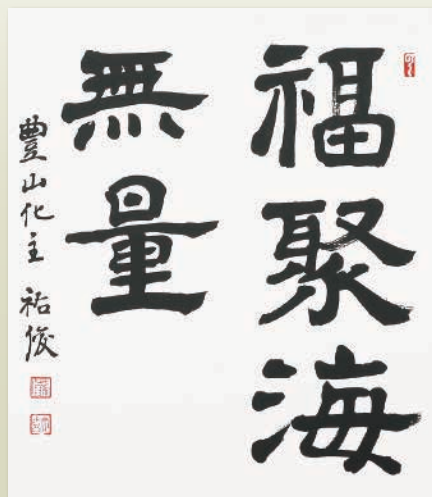 福聚海
無量
豊山化主 祐俊